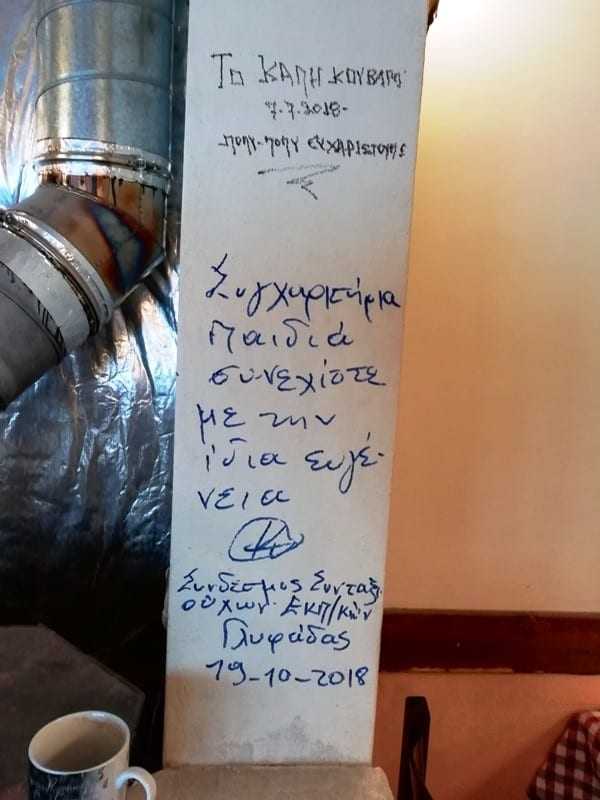 ΤΟ ΚΑΠΗ ΚΟΥΒΑΡΑ
7.7.2018-
ΠΟΛΥ-ΠΟΛΥ ΕΥΧΑΡΙΣΤΟΥΜΕ
Συγχαρητήρια
παιδιά
συνεχίστε
με την
ίδια ευγέ-
νεια
Σύνδεσμος Συνταξι
ούχων Εκπ/κών
Γλυφάδας
19-10-2018